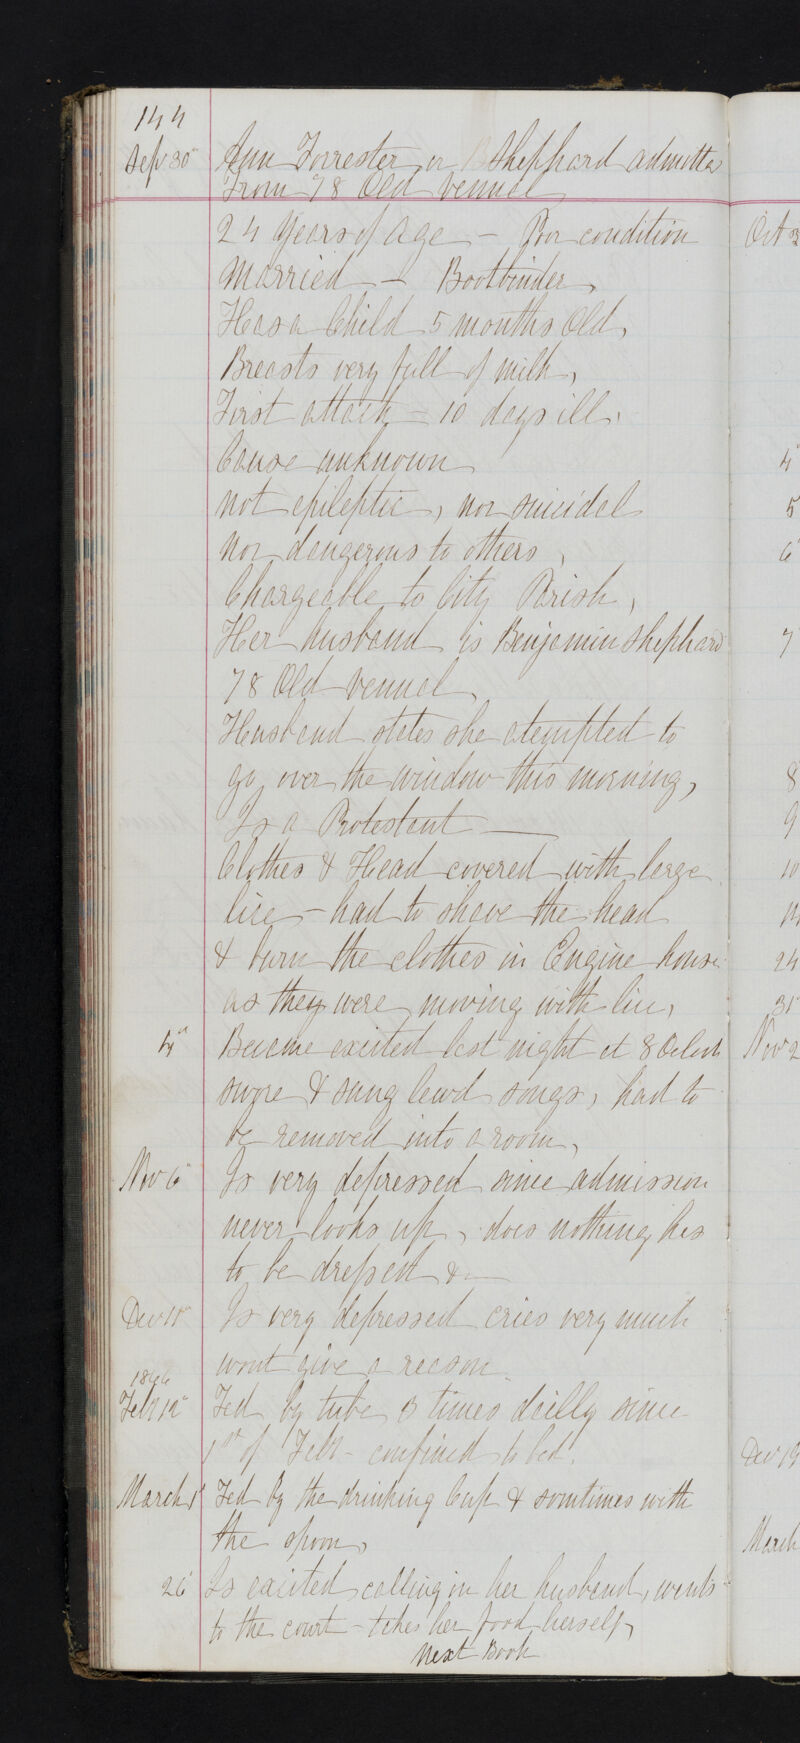 144
Sep 30" Ann Forrester or Shephard admitted
From 78 Old Vennel
24 Years of Age - Poor condition
Married - Bootbinder,
Has a Child 5 months Old,
Breasts very full of milk,
First attack - 10 days ill,
Cause unknown
not epileptic, nor suicidal
nor dangerous to others,
Chargeable to City Parish,
Her husband is Benjamin Shephard
78 Old Vennel,
Husband states she atempted to
go over the window this morning,
Is a Protestant —
Clothes & Head covered with large
lice - had to shave the head
& burn the clothes in Engine house
as they were moving with lice,
4" Became excited last night at 8 Oclock
swore & sung lewd songs, had to
be removed into a room,
Nov 6" Is very depressed since admission
never looks up, does nothing has
to be dressed &—
Dec 10" Is very depressed cries very much
wont give a reason
1866
Feby 12" Fed by tube 3 times daily since
1st of Feby - confined to bed.
March 1" Fed by the drinking Cup & somtimes with
the spoon,
26" Is excited calling on her husband, wants
to the court - takes her food herself,
Next Book
Oct 2
4"
5
6"
7
8
9
10
24
31
Nov 2
Dec 19
March